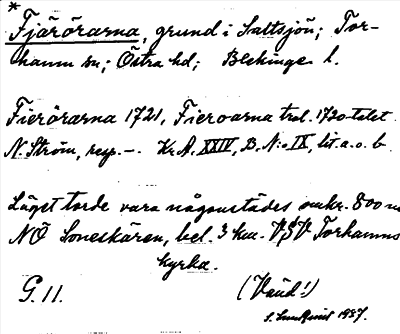 * Fjärörarna, grund i Saltsjön; Tor-
hamn sn; Östra hd; Blekinge l.
Fierörarna 1721, Fieroarna trol. 1720-talet
N. Ström, resp. -. Kr. A. XXIV, B. N:o IX, lit. a. o. b
Läget torde vara någonstädes omkr. 800 m
NÖ Loneskären, bel. 3 km. VSV Torhamns
kyrka.
G. 11. (Vänd!)
S. Lundquist 1937.